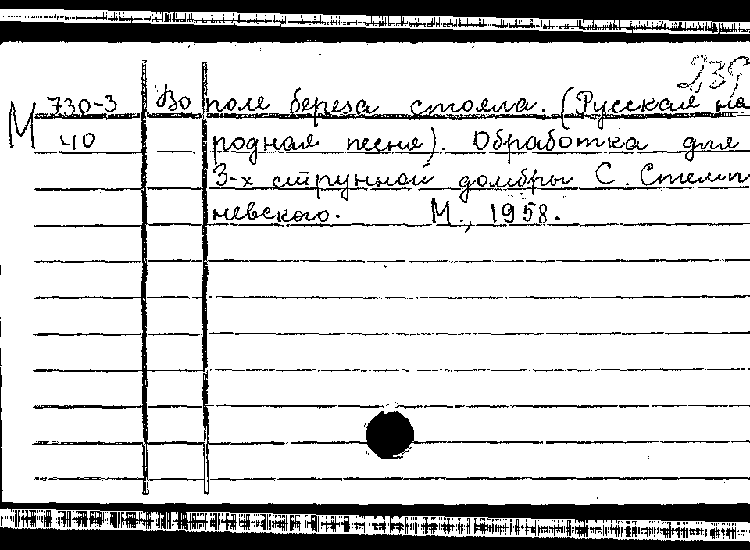 239
М 730-3 Во поле береза стояла. (Русская на
40 родная песня). Обработка для
3-х струнной домбры С. Стемп
невского. М., 1958.